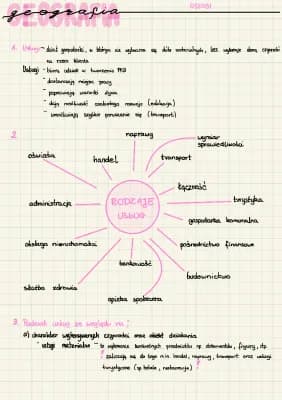 GEOGRAFIA
geografia
USŁUGI
1. Usługi - dział gospodarki, w którym nie wytwarza się dóbr materialnych, lecz wykonuje dane czynności
na rzecz klienta
Usługi - biorą udział w tworzeniu PKB
- dostarczają miejsc pracy
- poprawiają warunki życia
- dają możliwość osobistego rozwoju (edukacja)
- umożliwiają szybkie poruszanie się (transport)
2.
naprawy
wymiar
sprawiedliwości
oświata
handel
transport
łączność
administracja
RODZAJE
USŁUG
turystyka
gospodarka komunalna
obsługa nieruchomości
pośrednictwo finansowe
bankowość
budownictwo
służba zdrowia
opieka społeczna
3. Podział usług ze względu na:
a) charakter wykonywanych czynności oraz obiekt działania
- usługi materialne - to wykonanie konkretnych przedmiotów np. dokumentów, fryzury, itp.
zaliczają się do tego m.in. handel, naprawy, transport oraz usługi
turystyczne (np. hotele, restauracje)